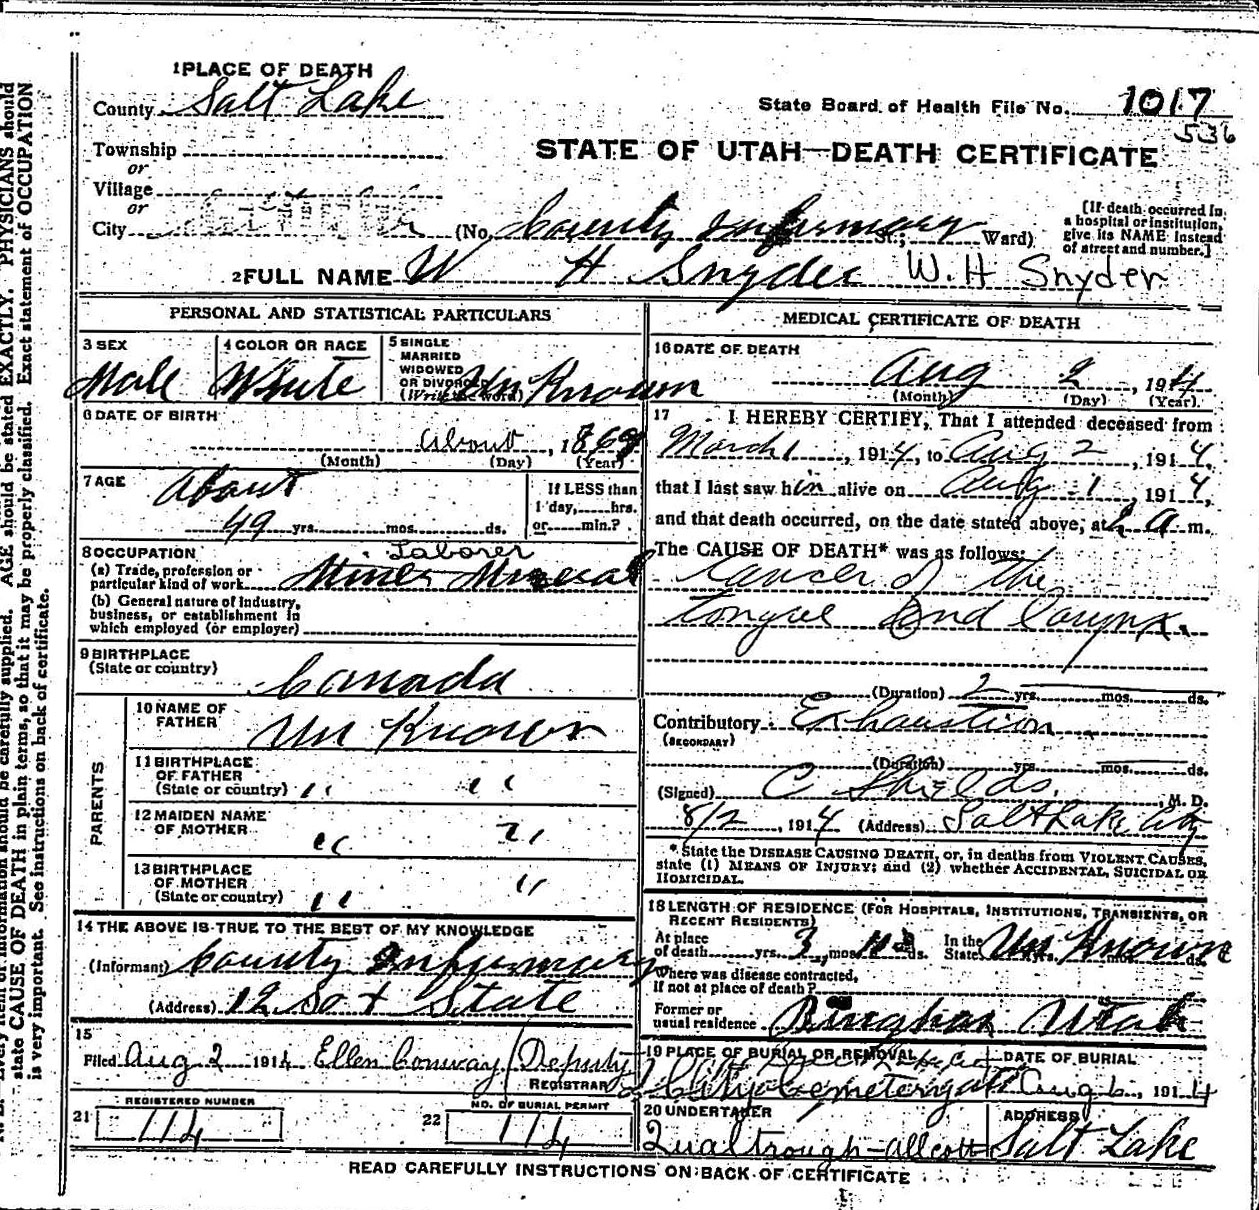 1 PLACE OF DEATH
County Salt Lake
State Board of Health File No. 1017
536
Township
or
STATE OF UTAH—DEATH CERTIFICATE
Village
or
City (No. County Infirmary St.; Ward)
[If death occurred in a hospital or institution, give its NAME instead of street and number.]
2 FULL NAME W H Snyder W.H Snyder
PERSONAL AND STATISTICAL PARTICULARS
3 SEX Male
4 COLOR OR RACE White
5 SINGLE MARRIED WIDOWED OR DIVORCED (Write the word) Un Known
6 DATE OF BIRTH
about, 1869
(Month) (Day) (Year)
7 AGE About
49 yrs. mos. ds.
If LESS than 1 day, hrs. or min.?
8 OCCUPATION Laborer
(a) Trade, profession or particular kind of work Miner Mineral
(b) General nature of industry, business, or establishment in which employed (or employer)
9 BIRTHPLACE (State or country) Canada
PARENTS
10 NAME OF FATHER Un Known
11 BIRTHPLACE OF FATHER (State or country) " "
12 MAIDEN NAME OF MOTHER " "
13 BIRTHPLACE OF MOTHER (State or country) " "
14 THE ABOVE IS TRUE TO THE BEST OF MY KNOWLEDGE
(Informant) County Infirmary
(Address) 12 So & State
15
Filed Aug 2 1914 Ellen Conway / Deputy
REGISTRAR
21 REGISTERED NUMBER 114
22 NO. OF BURIAL PERMIT 114
MEDICAL CERTIFICATE OF DEATH
16 DATE OF DEATH
Aug 2, 1914
(Month) (Day) (Year)
17 I HEREBY CERTIFY, That I attended deceased from
March 1, 1914, to Aug 2, 1914,
that I last saw him alive on Aug 1, 1914,
and that death occurred, on the date stated above, at a m.
The CAUSE OF DEATH* was as follows:
Cancer of the
Tongue and larynx.
(Duration) 2 yrs. mos. ds.
Contributory Exhaustion
(SECONDARY)
(Duration) yrs. mos. ds.
(Signed) C Shields, M. D.
8/2, 1914 (Address) Salt Lake City
* State the DISEASE CAUSING DEATH, or, in deaths from VIOLENT CAUSES,
state (1) MEANS OF INJURY; and (2) whether ACCIDENTAL, SUICIDAL OR
HOMICIDAL.
18 LENGTH OF RESIDENCE (FOR HOSPITALS, INSTITUTIONS, TRANSIENTS, OR
RECENT RESIDENTS)
At place of death yrs. 3 mos. ds. In the State Un Known yrs. mos. ds.
Where was disease contracted, if not at place of death?
Former or usual residence Bingham Utah
19 PLACE OF BURIAL OR REMOVAL City Cemetery
DATE OF BURIAL Aug 6, 1914
20 UNDERTAKER Qualtrough-Allcott
ADDRESS Salt Lake
READ CAREFULLY INSTRUCTIONS ON BACK OF CERTIFICATE
information should be carefully supplied. AGE should be stated EXACTLY. PHYSICIANS should
state CAUSE OF DEATH in plain terms, so that it may be properly classified. Exact statement of OCCUPATION
is very important. See instructions on back of certificate.